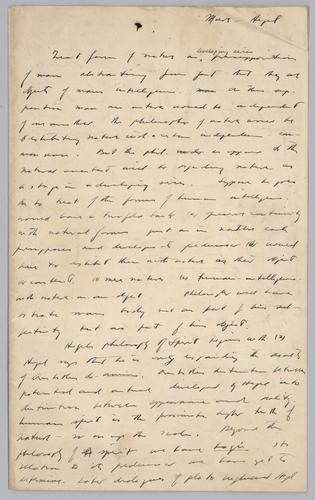 Marx - Hegel
developing series
Treat forms of nature as presuppositions
of man abstracting from fact that they are
objects of man's intelligence. man on this sup-
position man and nature would be independent
of one another. The philosopher of nature would be
nature with a certain independence
. But the phil. under an appeal to the
natural scientist will to regarding nature as
a stage in a developing series. Suppose he goes
on to treat of the forms of human intelligence
would have a twofold task (a) preserve continuity
with natural forms just as in each
presupposes and develops its predecessor (b) would
have to them with nature as their object
or content. (a) mere nature (b) human intelligence
with nature as an object Philosophy will have
to treat man's body not as part of his sub-
jectivity but as part of his object.
Hegel's philosophy of Spirit begins with (a)
Hegel says that he is only expanding the
of Aristotle's de anima. Aristotle's distinction between
potential and actual developed by Hegel into
distinction between appearance and reality
human spirit is the proximate higher truth of
nature - so on up the scale. Beyond the
philosophy of spirit we have logic its
relation to its predecessor we have yet to
determine. Later dialogues of Plato influenced Hegel